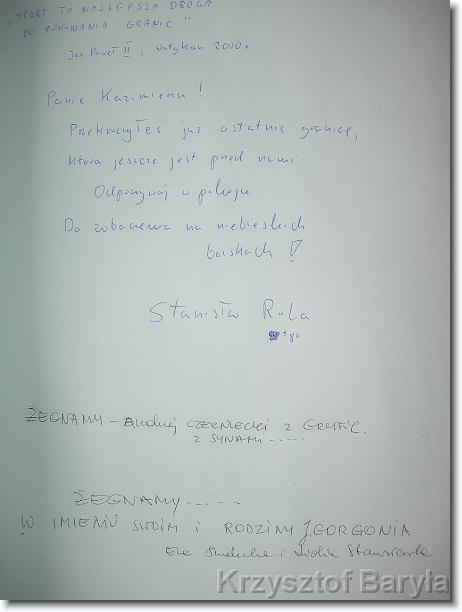 "SPORT TO NAJLEPSZA DROGA
DO POKONANIA GRANIC"
Jan Paweł II, Watykan 2000r
Panie Kazimierzu!
Przekroczyłeś już ostatnią granicę,
która jeszcze jest przed nami.
Odpoczywaj w pokoju
Do zobaczenia na niebieskich
boiskach!
Stanisław Rola
'80
ŻEGNAMY - Andrzej CZERNECKI z
z SYNAMI.....
ŻEGNAMY.....
W IMIENIU SWOIM I RODZINY J. GORGONIA
i
Krzysztof Baryła